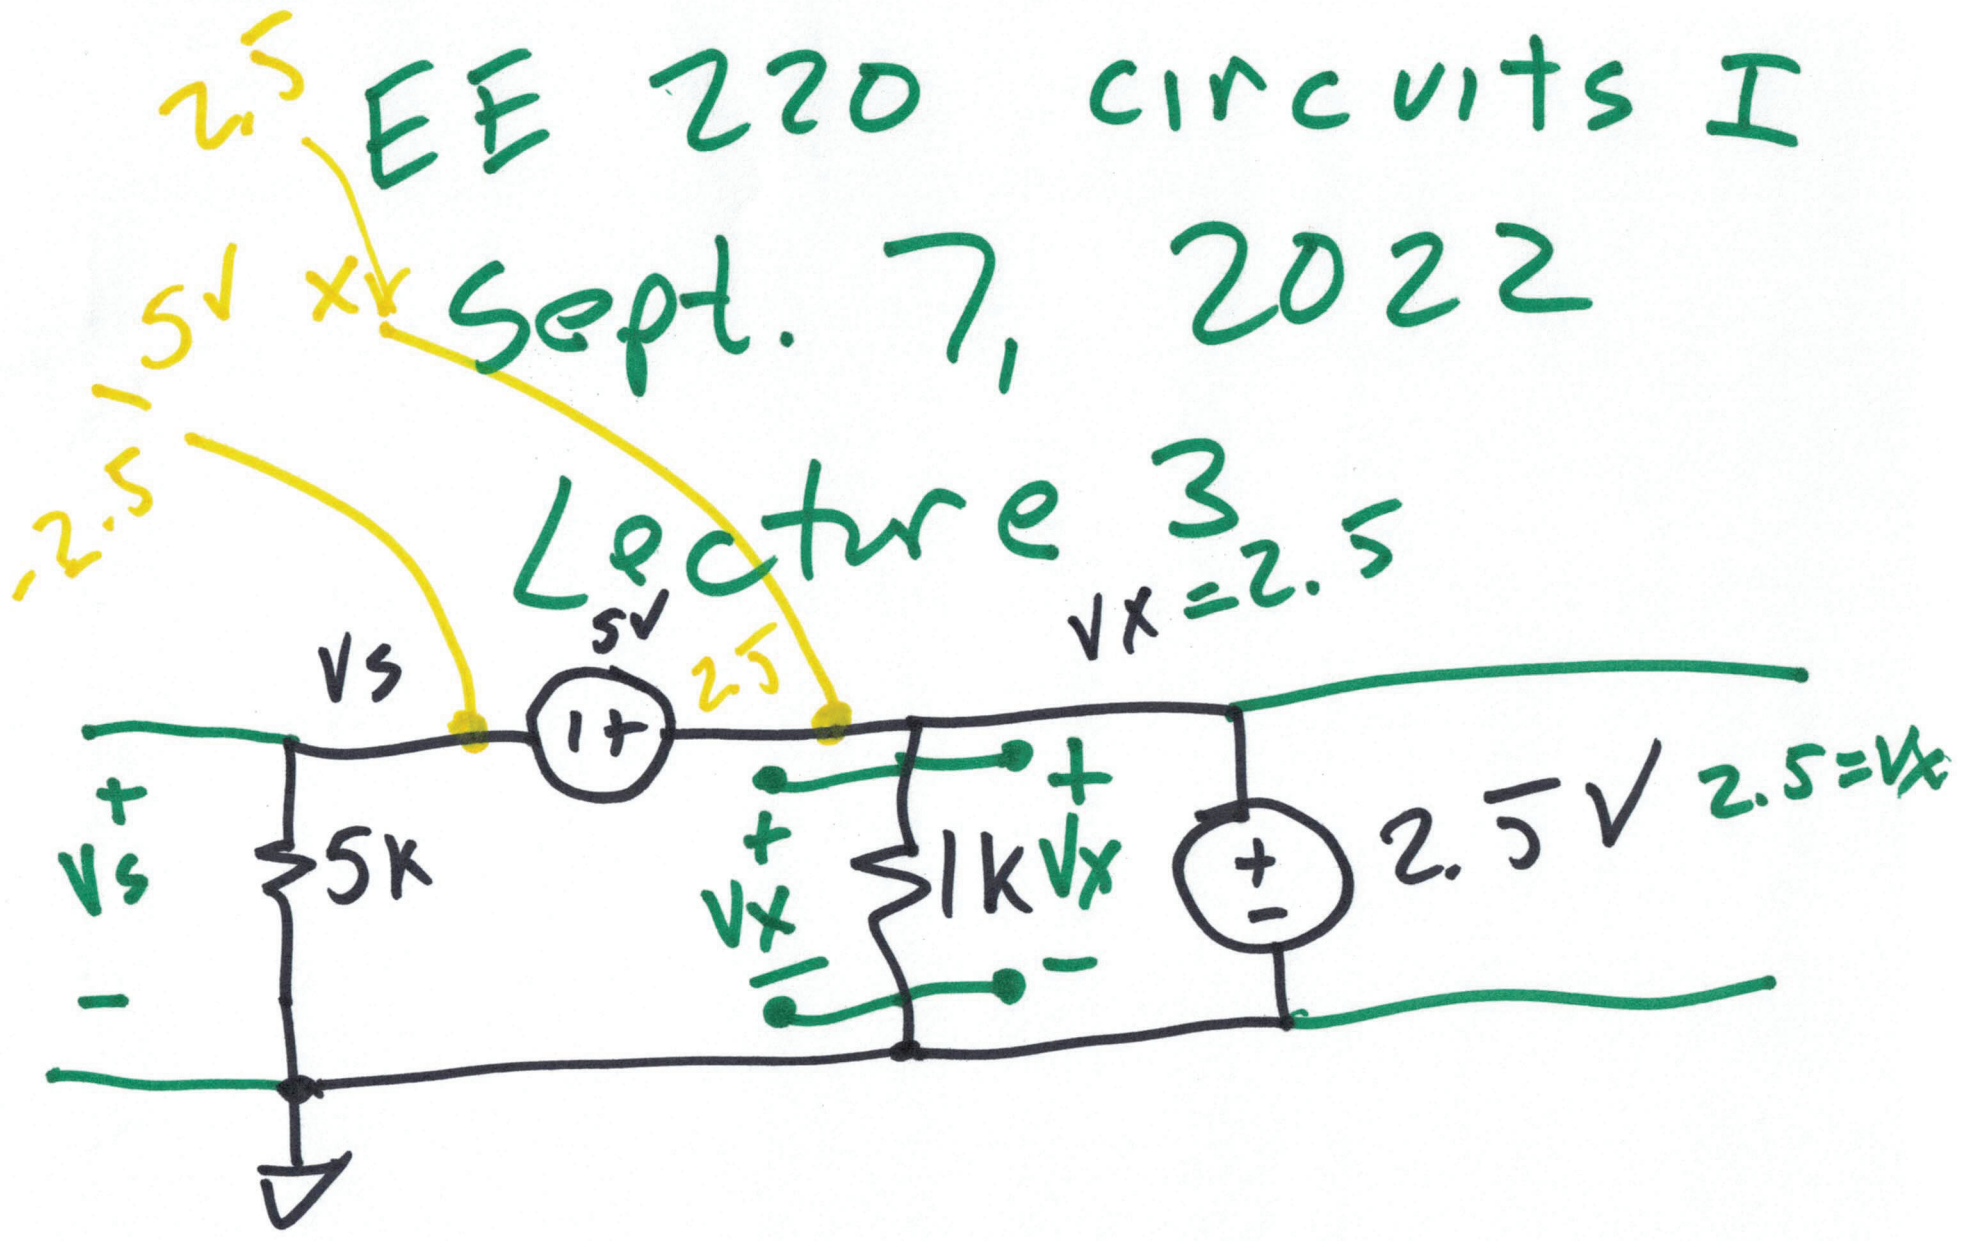 2.5
EE 220 circuits I
5V
Sept. 7, 2022
-
-2.5
Lecture 3
Vs
5V
2.5
Vx =2.5
+
Vs
-
5k
- +
+
Vx
-
1k
+
Vx
-
+
-
2.5V
2.5=Vx